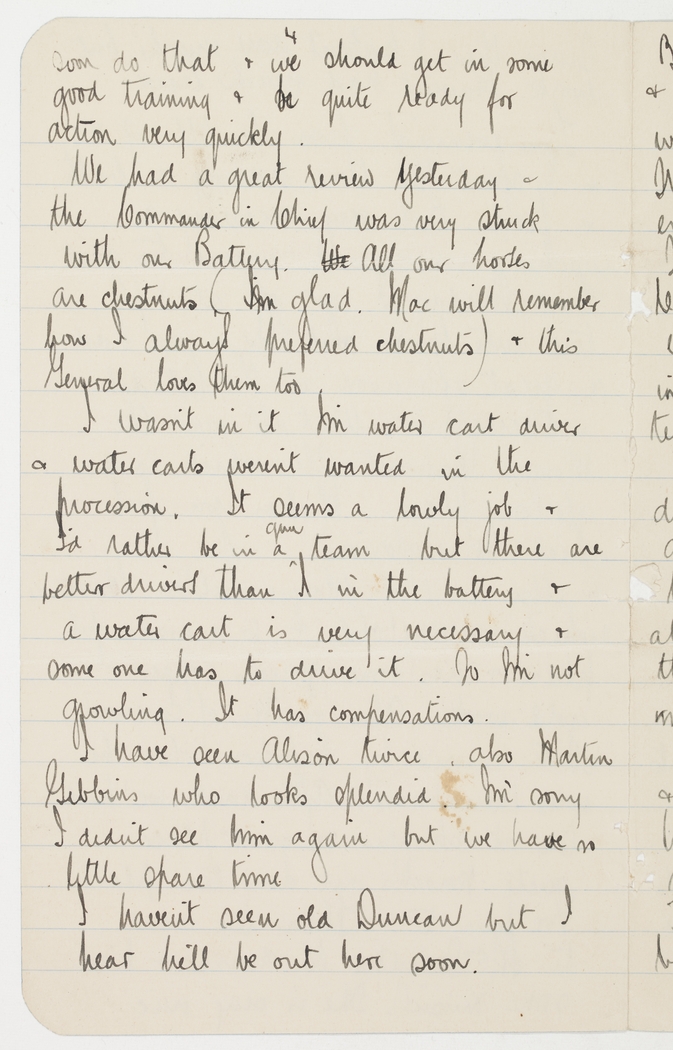 4
soon do that & we should get in some
good training & be quite ready for
action very quickly.
We had a great review yesterday -
the Commander in Chief was very struck
with our Battery. We All our horses
are chestnuts (I'm glad. Mac will remember
how I always preferred chestnuts) & this
General loves them too
I wasn't in it I'm water cart driver
& water carts weren't wanted in the
procession. It seems a lowly job &
I'd rather be in a gun team but there are
better drivers than I in the battery &
a water cart is very necessary &
some one has to drive it. So I'm not
growling. It has compensations.
I have seen Alison twice, also Martin
Gibbins who looks splendid. I'm sorry
I didn't see him again but we have so
little spare time
I haven't seen old Duncan but I
hear he'll be out here soon.